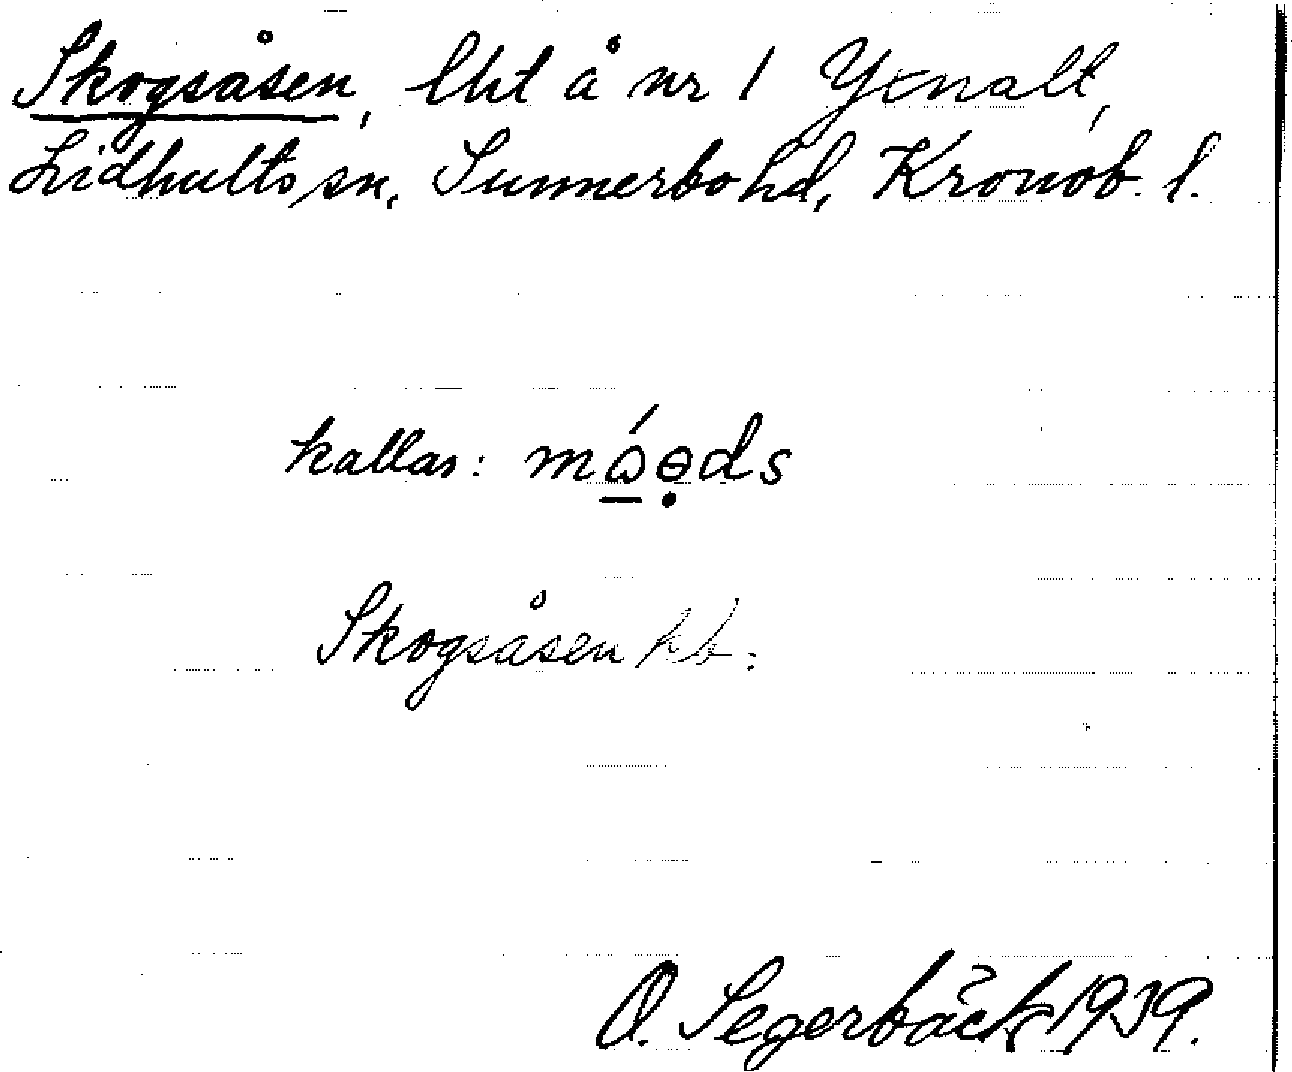 Skogsåsen, lht å nr 1 Yxnalt,
Lidhults sn, Sunnerbo hd, Kronob. l.
kallas: móɵ̣ds
Skogsåsen kb.
O. Segerbäck 1939.